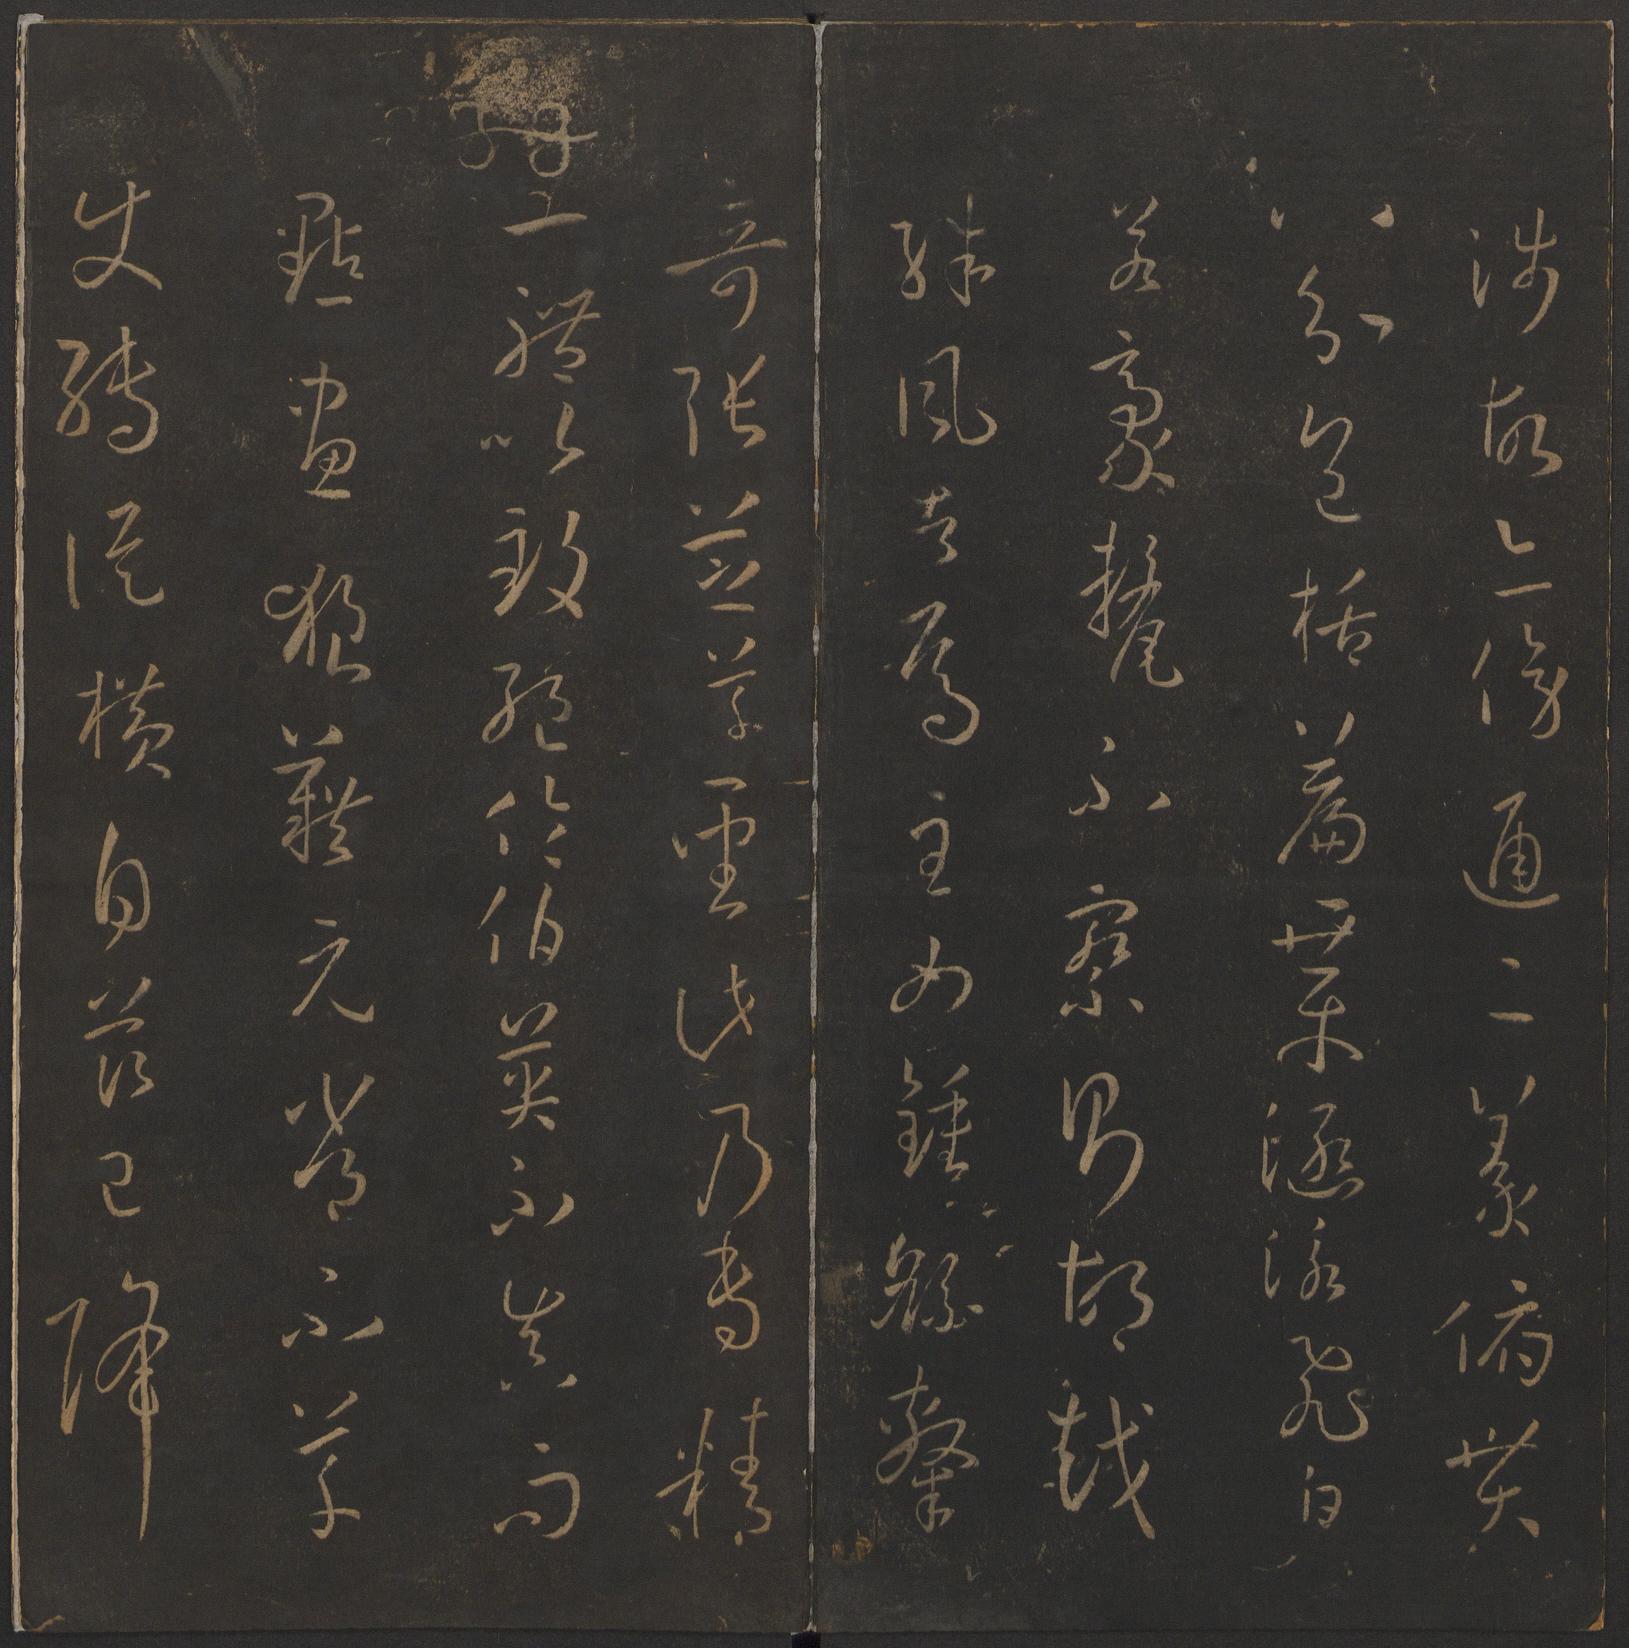 涉故亦傍通二篆俯貫
八分包括篇章涵泳飛白
若豪釐不察則胡越
殊風者焉至如鍾繇隸
奇張芝草聖此乃專精
一體以致絕倫伯英不真而
點畫狼藉元常不草
使轉縱橫自茲已降